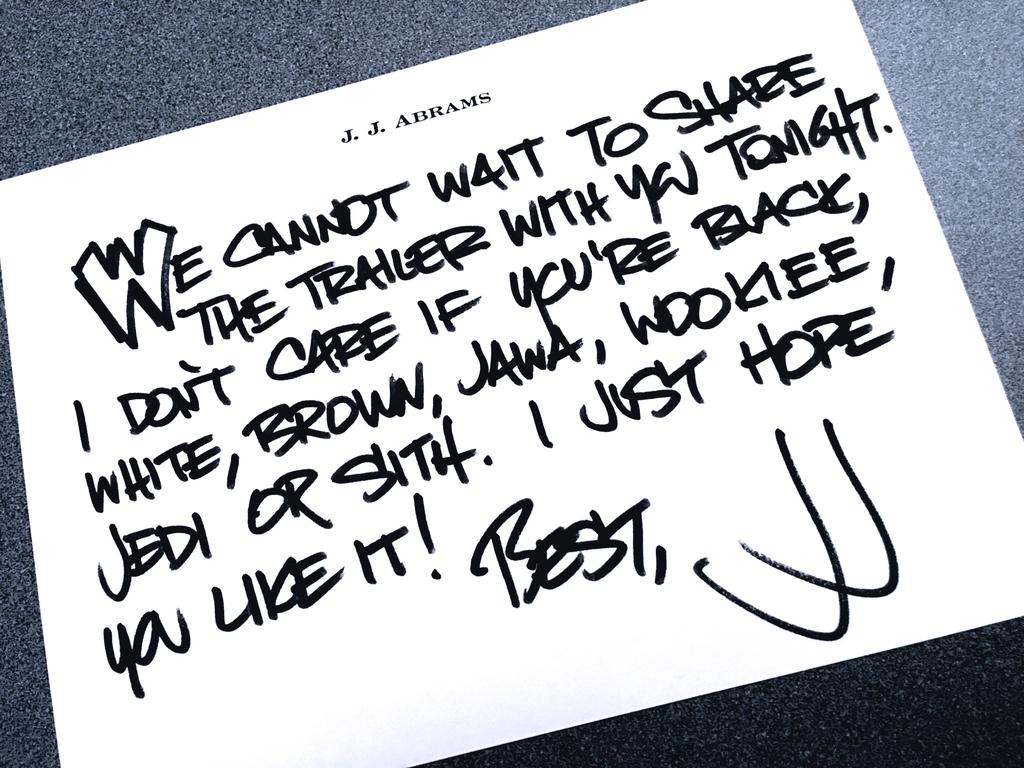 J. J. ABRAMS
WE CANNOT WAIT TO SHARE
THE TRAILER WITH YOU TONIGHT.
I DON'T CARE IF YOU'RE BLACK,
WHITE, BROWN, JAWA, WOOKIEE,
JEDI OR SITH. I JUST HOPE
YOU LIKE IT! BEST, JJ